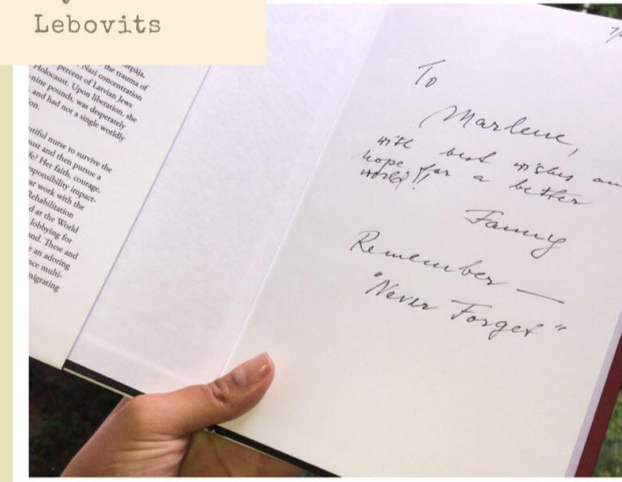 Lebovits
the trauma of
Nazi concentration
percent of Latvian Jews
Holocaust. Upon liberation, she
-nine pounds, was desperately
and had not a single worldly
nurse to survive the
and then pursue a
Her faith, courage,
impact-
work with the
Rehabilitation
at the World
lobbying for
These and
an adoring
multi-
To
Marlene,
with best wishes an
hope for a better
world!!
Fanny
Remember —
"Never Forget"